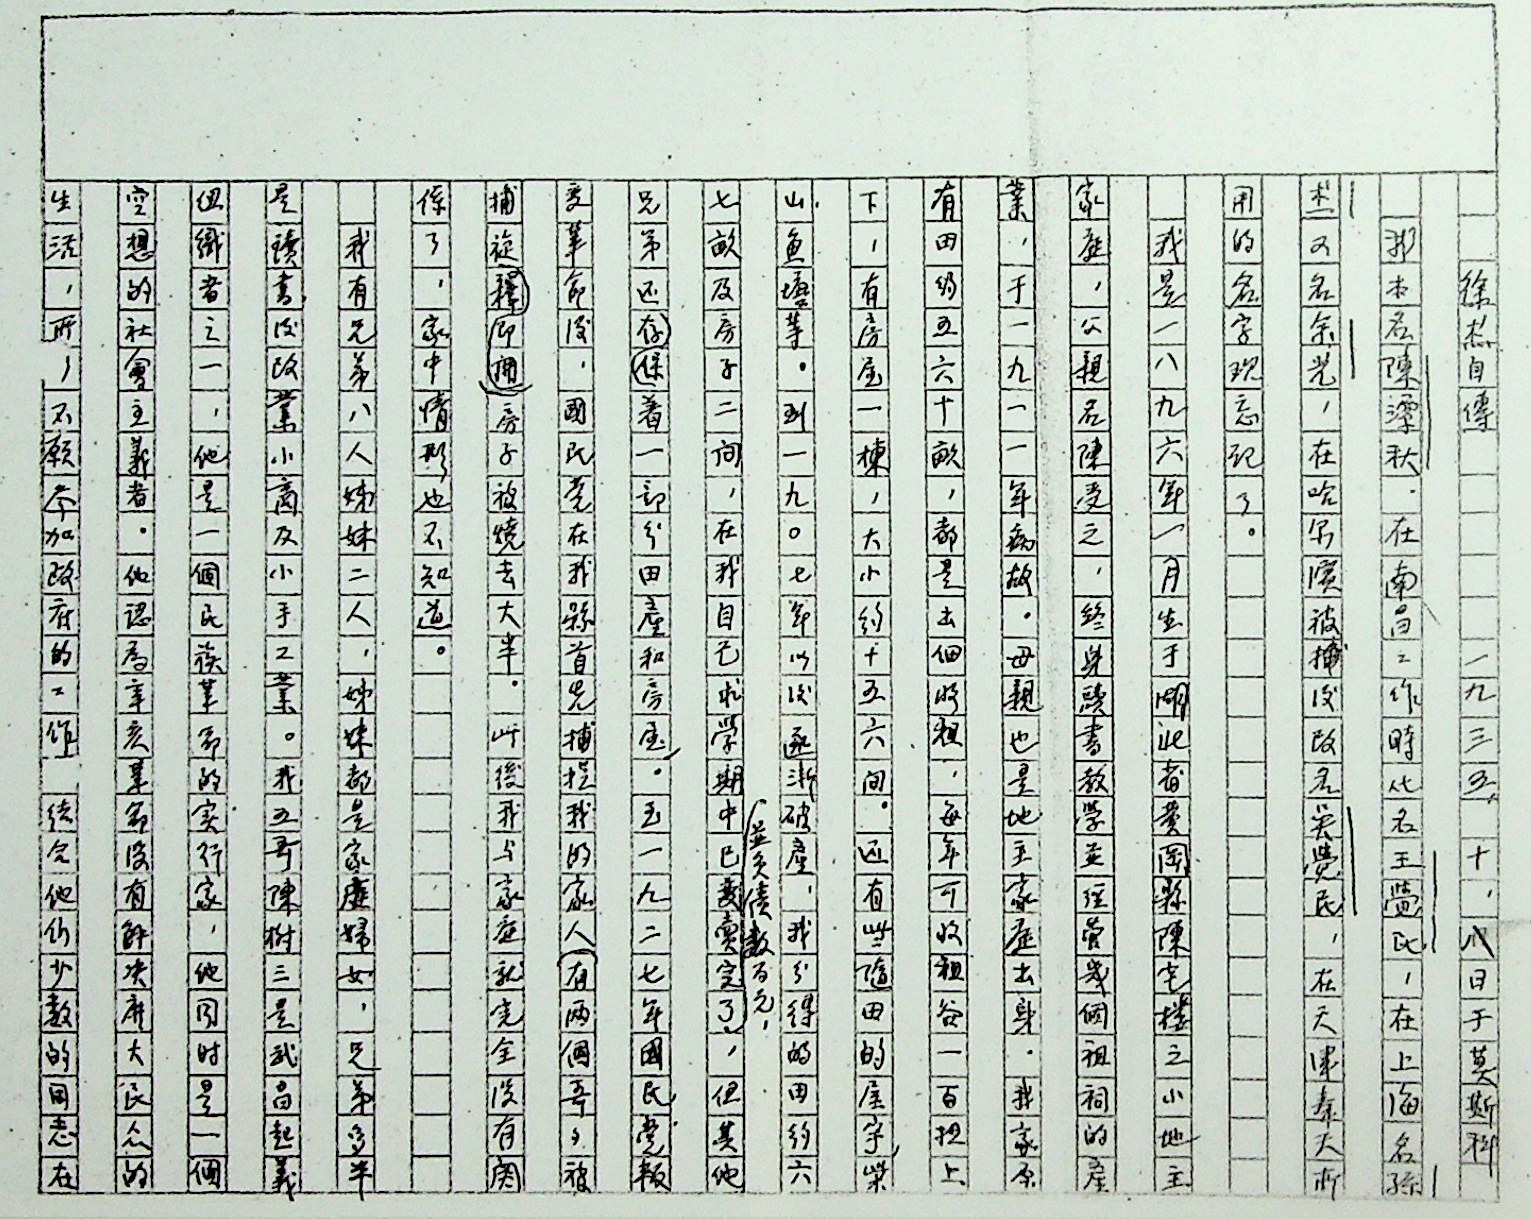 徐杰自傳 一九三五，十，八日于莫斯科
我本名陳潭秋．在南昌工作時化名王覺民，在上海名孫
杰又名余光，在哈尔濱被捕后改名吳覺民，在天津奉天所
用的名字現忘記了。
我是一八九六年一月生于湖北省黄岡縣陳宅樓之小地主
家庭，父親名陳受之，終身讀書教學並經管幾個祖祠的產
業，于一九一一年病故．母親也是地主家庭出身．我家原
有田約五六十畝，都是出佃收租，每年可收租谷一百担上
下，有房屋一棟，大小約十五六间。还有些隨田的屋宇，柴
山，魚塘等。到一九〇七年以後逐漸破產，我分得的田約六
七畝及房子二间，在我自己求學期中已變賣完了，並负債数百元，但其他
兄弟还存保着一部分田產和房屋。至一九二七年國民党叛
变革命後，國民党在我縣首先捕捉我的家人有兩個哥々被
捕旋釋即用房子被燒去大半．此後我与家庭就完全没有関
係了，家中情形也不知道。
我有兄弟八人姊妹二人，姊妹都是家庭婦女，兄弟多半
是讀書後改業小商及小手工業。我五哥陳樹三是武昌起義
组織者之一，他是一個民族革命的実行家，他同时是一個
空想的社會主義者。他認為辛亥革命没有解决廣大民众的
生活，所以不願参加政府的工作 結合他们少数的同志在